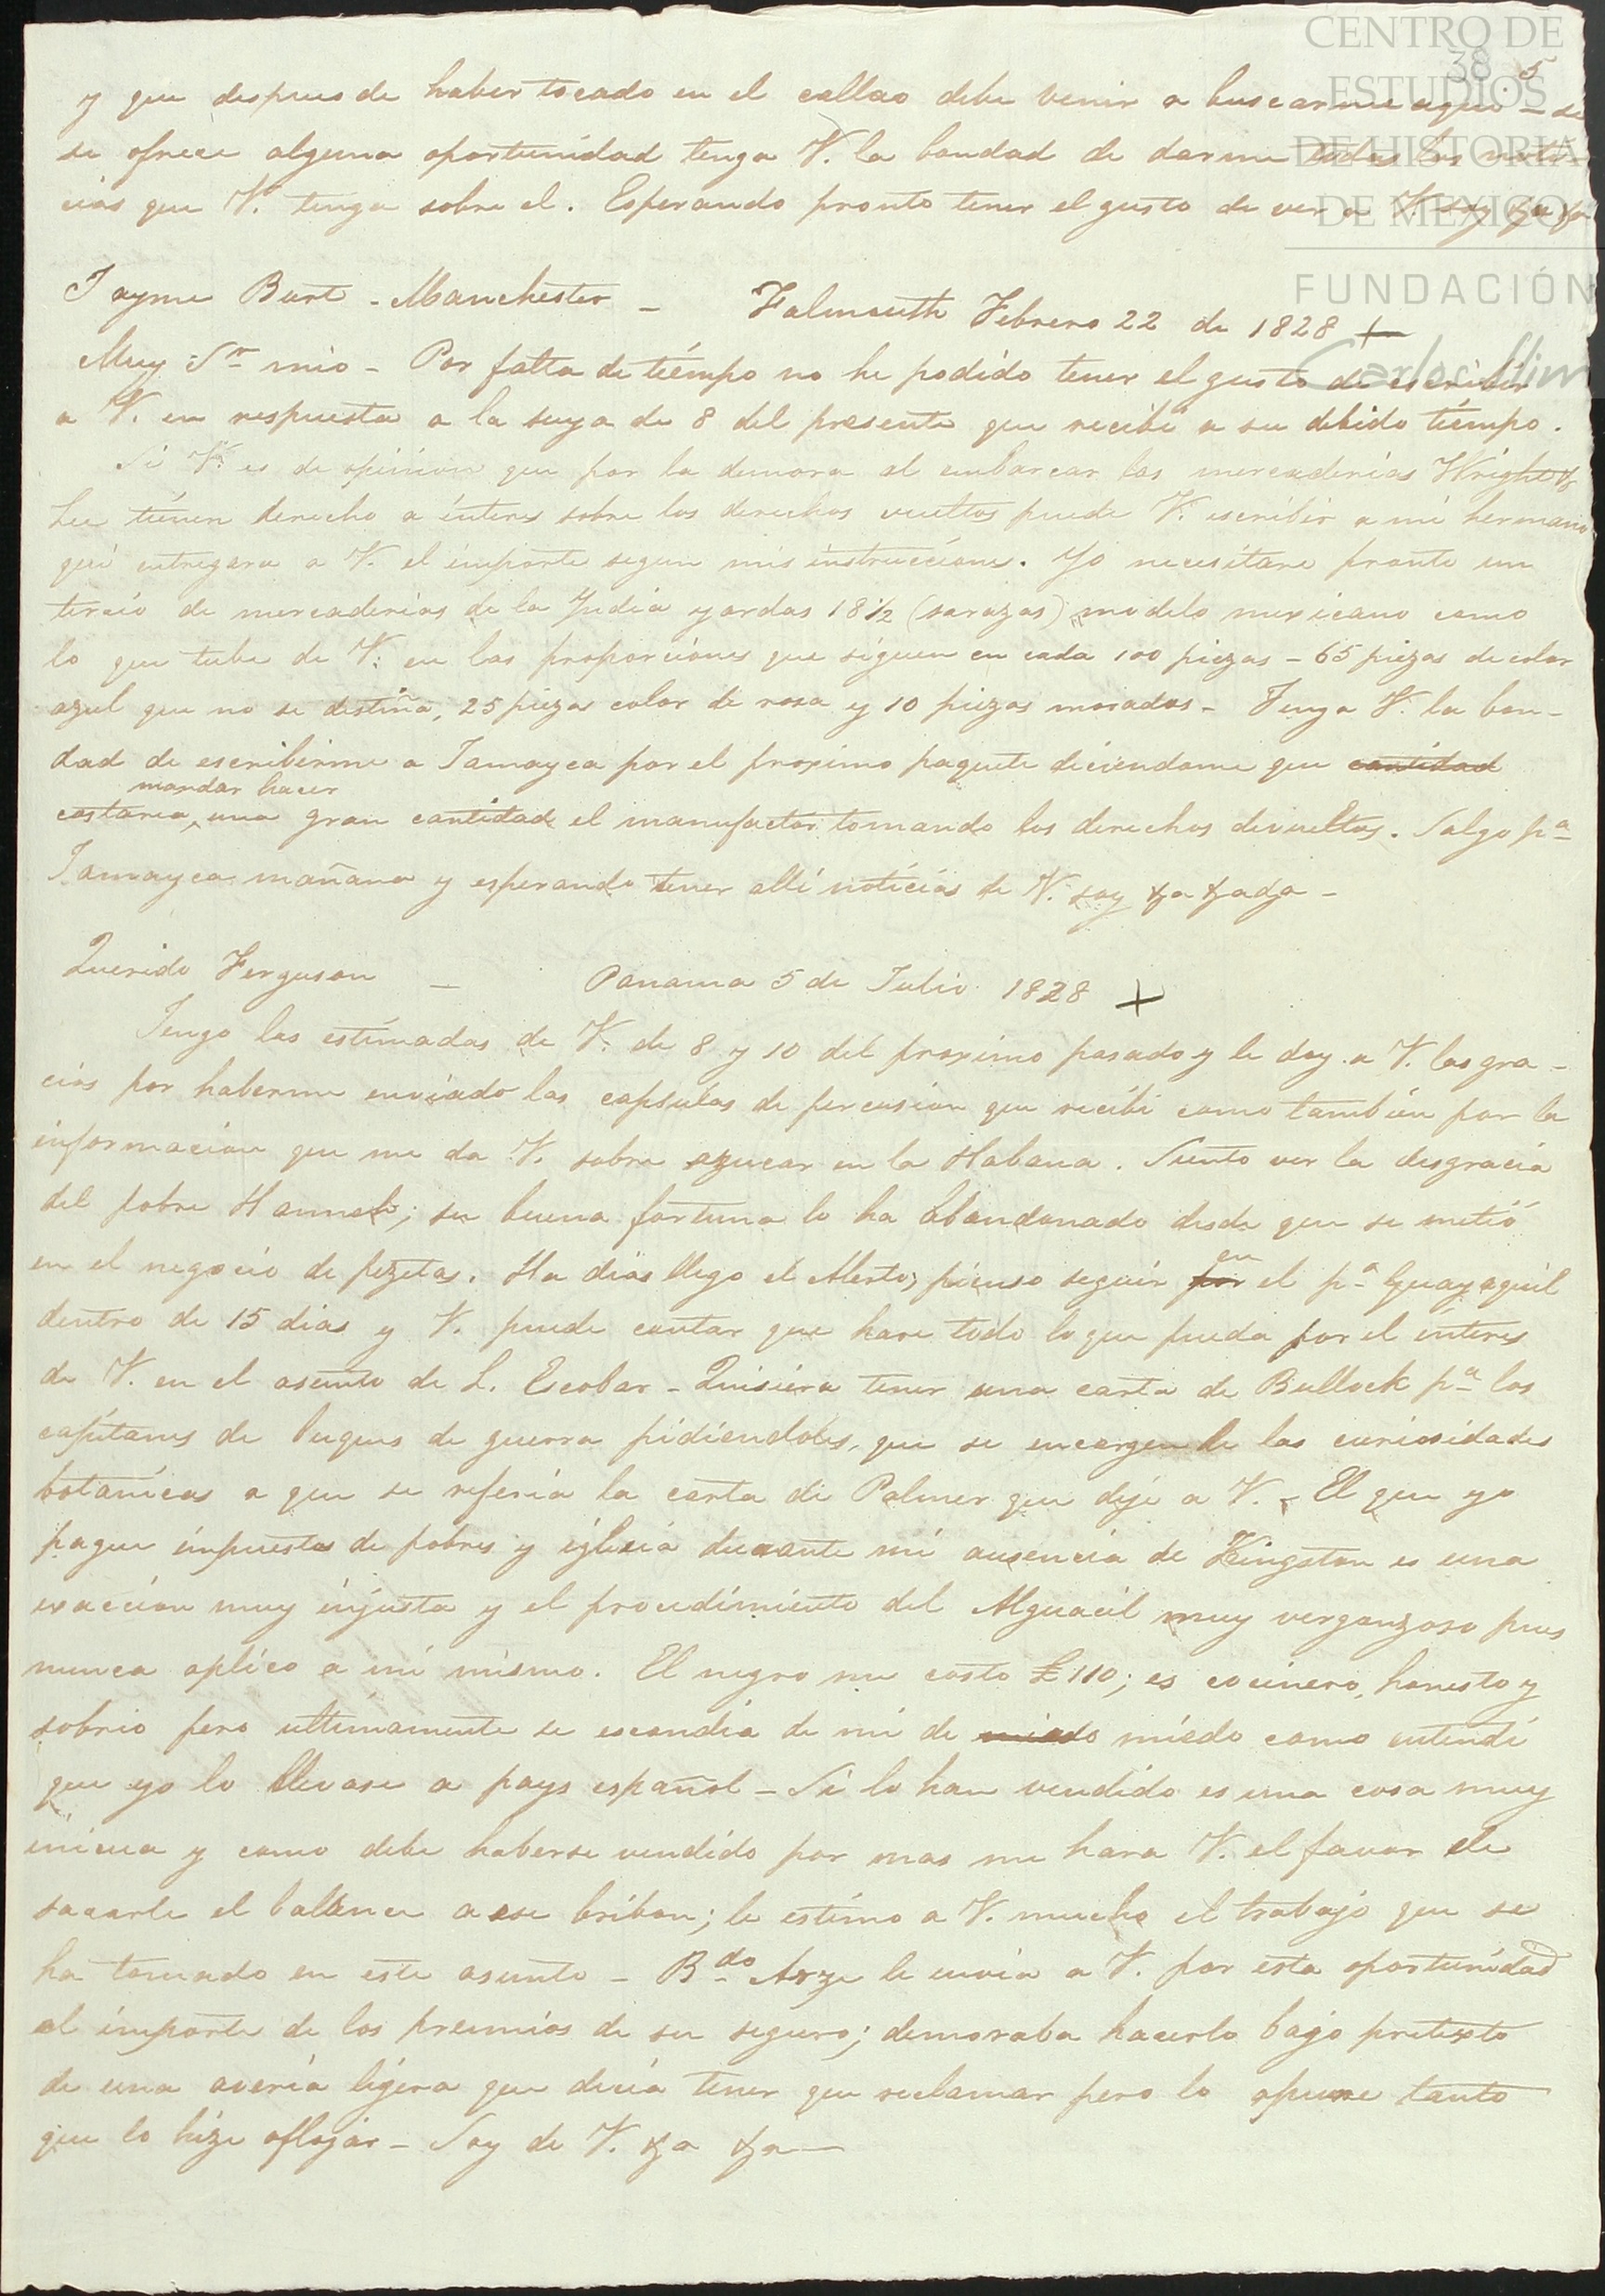 CENTRO DE
ESTUDIOS
DE HISTORIA
DE MEXICO
FUNDACIÓN
Carlos Slim
38 5
y que despues de haber tocado en el callao debe venir a buscarme aqui - si
se ofrece alguna oportunidad tenga V. la bondad de darme todas las noti-
cias que V. tenga sobre el. Esperando pronto tener el gusto de ver a V. soy &a &a
Jayme Burt - Manchester - Falmouth Febrero 22 de 1828 +
Muy Sr mio - Por falta de tiempo no he podido tener el gusto de escribir
a V. en respuesta a la suya de 8 del presente que recibi a su debido tiempo.
Si V. es de opinion que por la demora al embarcar las mercaderias Wright &
Lee tienen derecho a interes sobre los derechos vueltos puede V. escribir a mi hermano
qui entregara a V. el importe segun mis instrucciones. Yo necesitare pronto un
tercio de mercaderias de la India yardas 18 1/2 (sarazas) modelo mexicano como
lo que tube de V. en las proporciones que siguen en cada 100 piezas - 65 piezas de color
azul que no se destiña, 25 piezas color de rosa y 10 piezas moradas - Tenga V. la bon-
dad de escribirme a Jamayca por el proximo paquete diciendome que cantidad
mandar hacer
costaria, una gran cantidad el manufactor tomando los derechos devueltos. Salgo pa
Jamayca mañana y esperando tener alli noticias de V. soy &a &ada -
Querido Ferguson - Panama 5 de Julio 1828 +
Tengo las estimadas de V. de 8 y 10 del proximo pasado y le doy a V. las gra-
cias por haberme enviado las capsulas de percusion que recibi como tambien por la
informacion que me da V. sobre azucar en la Habana. Siento ver la desgracia
del pobre ; su buena fortuna lo ha abandonado desde que se metió
en el negocio de pezetas. Ha dias llego el Alerto, pienso seguir por en el pa Guayaquil
dentro de 15 dias y V. puede contar que hare todo lo que pueda por el interes
de V. en el asunto de L. Escobar - Quisiera tener una carta de Bullock pa los
capitanes de buques de guerra pidiendoles, que se encargen de las curiosidades
botanicas a que se referia la carta de Palmer que deje a V. - El que yo
pague impuestos de pobres y iglesia durante mi ausencia de Kingston es una
exaccion muy injusta y el procedimiento del Alguacil muy vergonzoso pues
nunca aplico a mi mismo. El negro me costo £110; es cocinero, honesto y
sobrio pero ultimamente se escondia de mi de miedo miedo como entendi
que yo lo llevase a pays español - Si lo han vendido es una cosa muy
inicua y como debe haberse vendido por mas me hara V. el favor de
sacarle el balance a ese bribon; le estimo a V. mucho el trabajo que se
ha tomado en este asunto - Bdo Arze le envia a V. por esta oportunidad
el importe de los premios de su seguro; demoraba hacerlo bajo pretexto
de una averia ligera que decia tener que reclamar pero lo apure tanto
que lo hize aflojar - Soy de V. &a &a